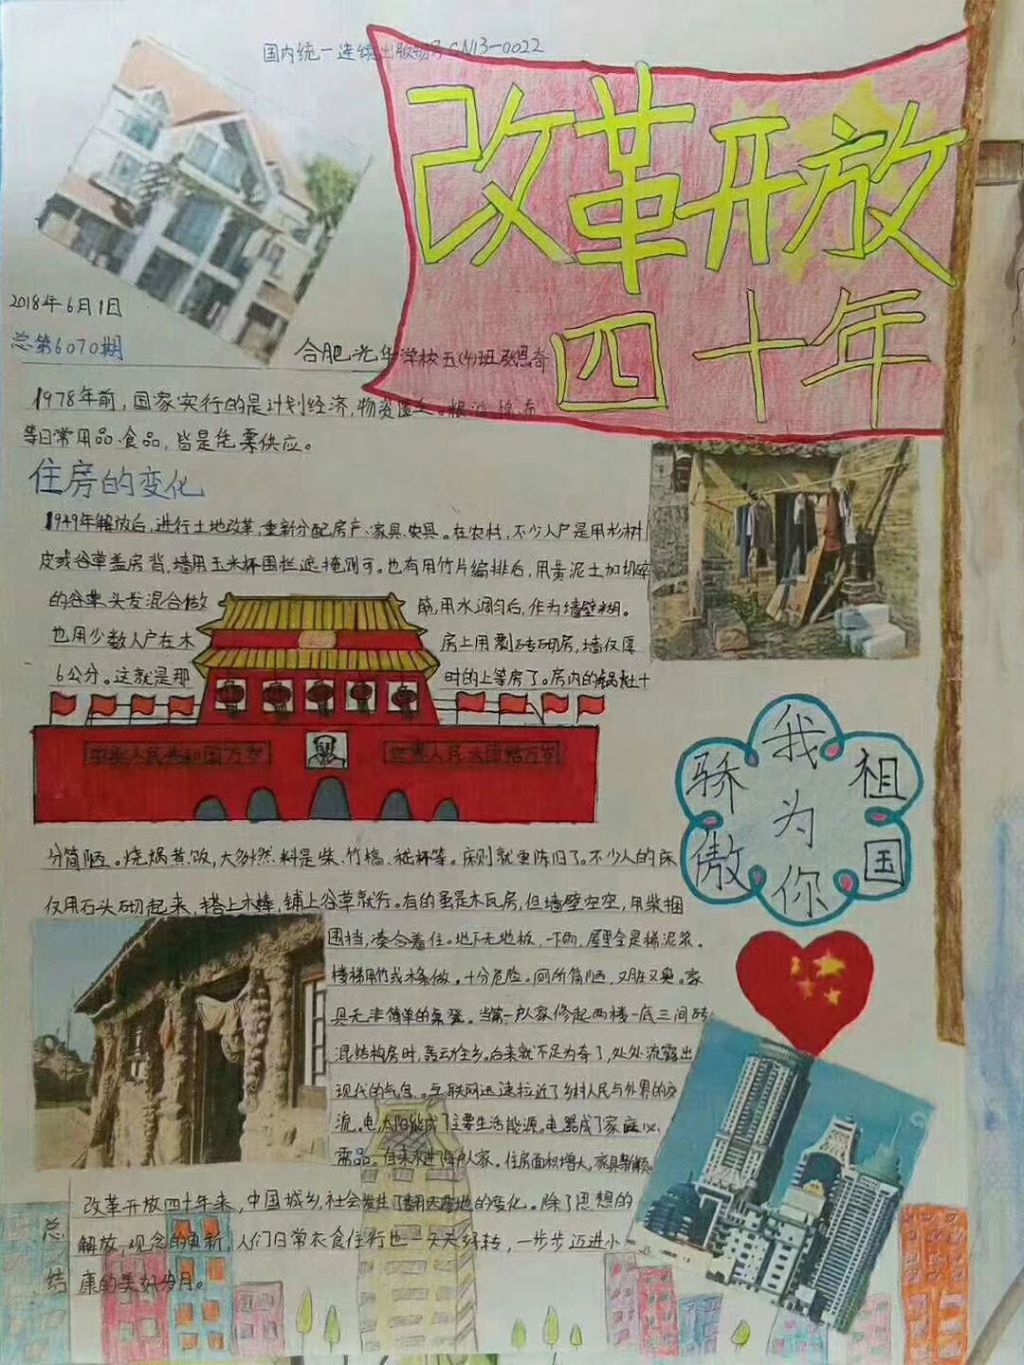 国内统一连续出版物号CN13-0022
改革开放
四十年
2018年6月1日
总第6070期
合肥光华学校五(4)班
1978年前,国家实行的是计划经济,物资匮乏。粮油
等日常用品、食品,皆是凭票供应。
住房的变化
1949年解放后,进行土地改革,重新分配房产、家具、农具。在农村,不少人户是用杉树
皮或谷草盖房背,墙用玉米杆围拦遮掩则可。也有用竹片编排后,用黄泥土加切碎
的谷草头发混合做筋,用水调匀后,作为墙壁糊。
也用少数人户在木房上用割砖砌房,墙仅厚
6公分。这就是那时的上等房了。房内的锅灶十
中华人民共和国万岁
世界人民大团结万岁
我为你骄傲祖国
分简陋。烧焗煮饭,大多燃料是柴、竹槁、秸杆等。床则就更陈旧了。不少人的床
仅用石头砌起来,搭上木棒,铺上谷草就行。有的虽是木瓦房,但墙壁空空,用柴捆
围挡,凑合着住。地下无地板,一下雨,屋里全是稀泥浆。
楼梯用竹或木条做。十分危险。厕所简陋,又脏又臭。家
具无非简单的桌凳。当第一户人家修起两楼一底三间砖
混结构房时,轰动全乡。后来就不足为奇了,处处流露出
现代的气息。互联网迅速拉近了乡村人民与外界的交
流。电、太阳能成了主要生活能源。电器成了家庭必
需品。自来水进了每户人家。住房面积增大,家具新颖。
总结
改革开放四十年来,中国城乡社会发生了翻天覆地的变化。除了思想的
解放,观念的更新,人们日常衣食住行也一天天好转,一步步迈进小
康的美好岁月。